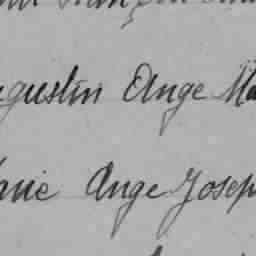 gustin Ange Ma
arie Ange Josep